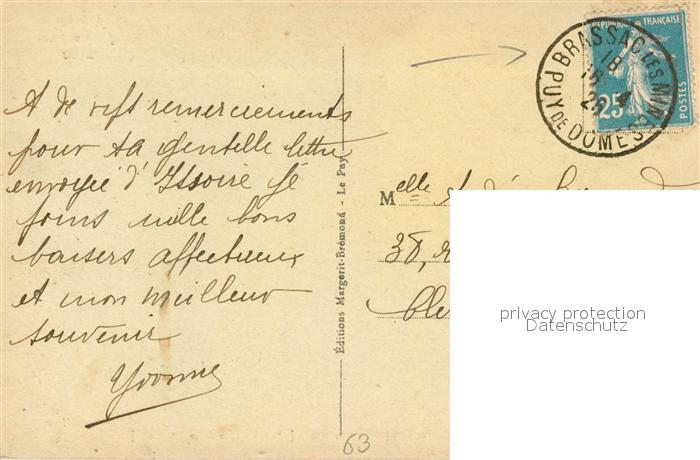 A de vifs remerciements
pour ta gentille lettre
envoyée d'Issoire je
joins mille bons
baisers affectueux
et mon meilleur
souvenir
Yvonne
Éditions Margerit-Brémond - Le Puy
RÉPUBLIQUE FRANÇAISE
25
POSTES
BRASSAC LES MINES
18
16 4
26
PUY DE DOME
Melle
38,
Cle
63
privacy protection
Datenschutz